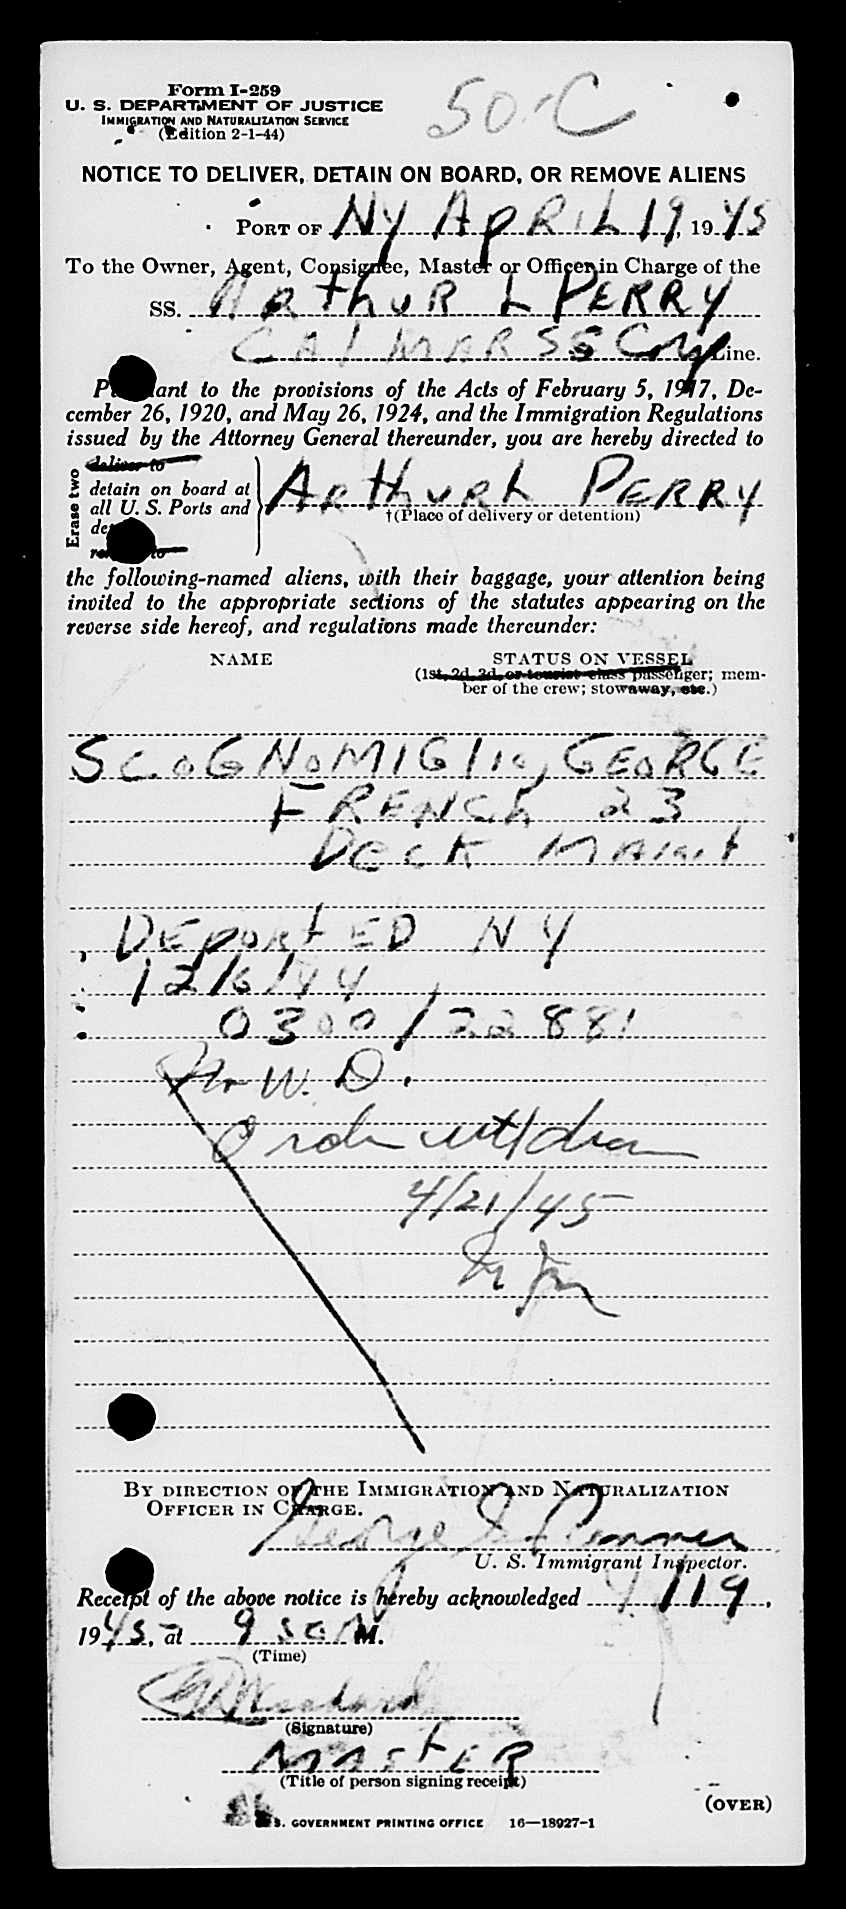 Form I-259
50-C
U. S. DEPARTMENT OF JUSTICE
IMMIGRATION AND NATURALIZATION SERVICE
(Edition 2-1-44)
NOTICE TO DELIVER, DETAIN ON BOARD, OR REMOVE ALIENS
PORT OF NY APRIL 19, 1945
To the Owner, Agent, Consignee, Master or Officer in Charge of the
SS. ARTHUR L PERRY
CALMAR SS Corp Line.
Pursuant to the provisions of the Acts of February 5, 1917, De-
cember 26, 1920, and May 26, 1924, and the Immigration Regulations
issued by the Attorney General thereunder, you are hereby directed to
Erase two
deliver to
detain on board at
all U. S. Ports and
ARTHUR L PERRY
†(Place of delivery or detention)
the following-named aliens, with their baggage, your attention being
invited to the appropriate sections of the statutes appearing on the
reverse side hereof, and regulations made thereunder:
NAME STATUS ON VESSEL
(1st, 2d, 3d, or tourist class passenger; mem-
ber of the crew; stowaway, etc.)
SCOGNOMIGLIO, GEORGE
FRENCH 23
DECK MAINT
DEPORTED NY
12/6/44
0300/22881
W. D.
Order withdrawn
4/21/45
BY DIRECTION OF THE IMMIGRATION AND NATURALIZATION
OFFICER IN CHARGE.
George
U. S. Immigrant Inspector.
Receipt of the above notice is hereby acknowledged 4/19,
1945, at 9 50 A M.
(Time)
(Signature)
MASTER
(Title of person signing receipt)
(OVER)
S. GOVERNMENT PRINTING OFFICE 16—18927-1